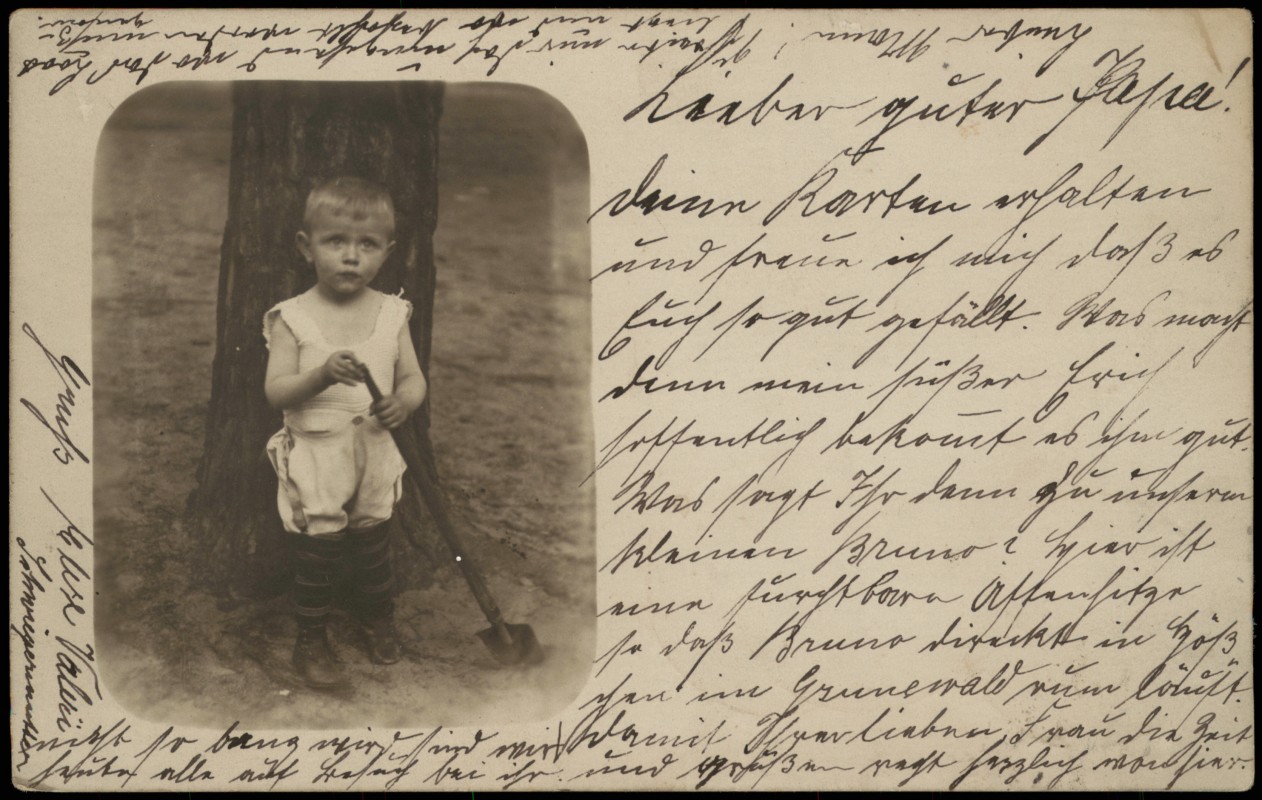 Lieber guter Papa!
Deine Karten erhalten
und freue ich mich daß es
Euch so gut gefällt. Was macht
denn mein süßer Erich
hoffentlich bekom̄t es ihm gut.
Was sagt Ihr denn zu unserm
kleinen Bruno? Hier ist
eine furchtbare Affenhitze
so daß Bruno direckt in Höß
chen im Grunewald rum läuft.
Damit Ihrer lieben Frau die Zeit
nicht so bang wird, sind wir
heute alle auf Besuch bei ihr. und grüßen recht herzlich von hier.
Gruß Eure Valeri
Schwiegermutter
Lieber Mann!